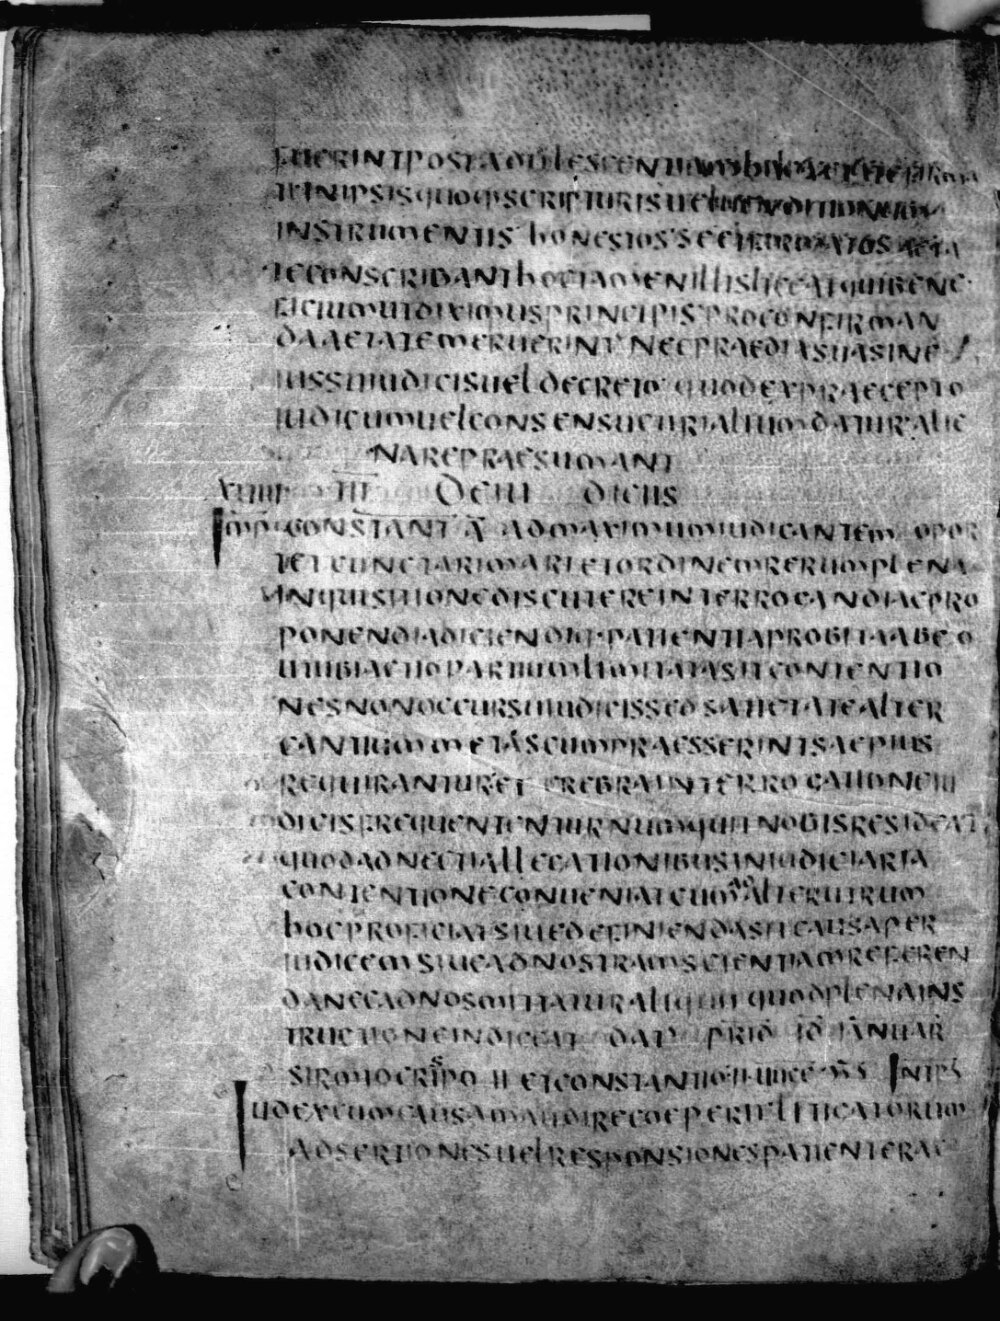 FUERINT POST ADULESCENTIAM
TEIN IPSIS QUOQ SCRIPTURIS UEL UENDITIONUM
INSTRUMENTIS HONESTOS SE ET PROBATOS AETA
TE CONSCRIBANT HOC TAMEN ILLIS LICEAT QUI BENE
FICIUM UT DIXIMUS PRINCIPIS PRO CONFIRMAN
DA AETATE MERUERINT NEC PRAEDIA SUA SINE
IUSSU IUDICIS UEL DECRETO QUOD EX PRAECEPTO
IUDICUM UEL CONSENSU CURIALIUM DATUR ALIE
NARE PRAESUMANT
XUIIII III DE IUDICIIS
IMP CONSTANT A AD MAXIMUM IUDICANTEM OPOR
TET CUNCTARUM ARTE ET ORDINEM RERUM PLENA
INQUISITIONE DISCUTERE INTERROGANDI AC PRO
PONENDI ADICIENDIQ PATIENTIA PROBITA AB EO
UT UBI ACTIO PARTIUM LIMITATA SIT CONTENTIO
NES NON OCCURSU IUDICIS SED SATIETATE ALTER
CANTIUM METAS CUM PRAESSERINT SAEPIUS
REQUIRANTUR ET CREBRA INTERROGATIONE IU
DICIS FREQUENTENTUR NUMQUI NOBIS RESIDEAT
QUOD ADNECTI ALLEGATIONIBUS IN IUDICIARIA
CONTENTIONE CONUENIAT CUM ALTERUTRUM
HOC PROFICIAT SIUE DEFINIENDA SIT CAUSA PER
IUDICEM SIUE AD NOSTRAM SCIENTIAM REFEREN
DA NEC AD NOS MITTATUR ALIQUIT QUOD PLENA INS
TRUCTIONE INDIGEAT DAT PRID ID IANUAR
SIRMIO CRISPO II ET CONSTANTINO II CC SS INTPS
IUDEX CUM CAUSAM AUDIRE COEPERIT LITIGATORUM
ADSERTIONES UEL RESPONSIONES PATIENTER AC